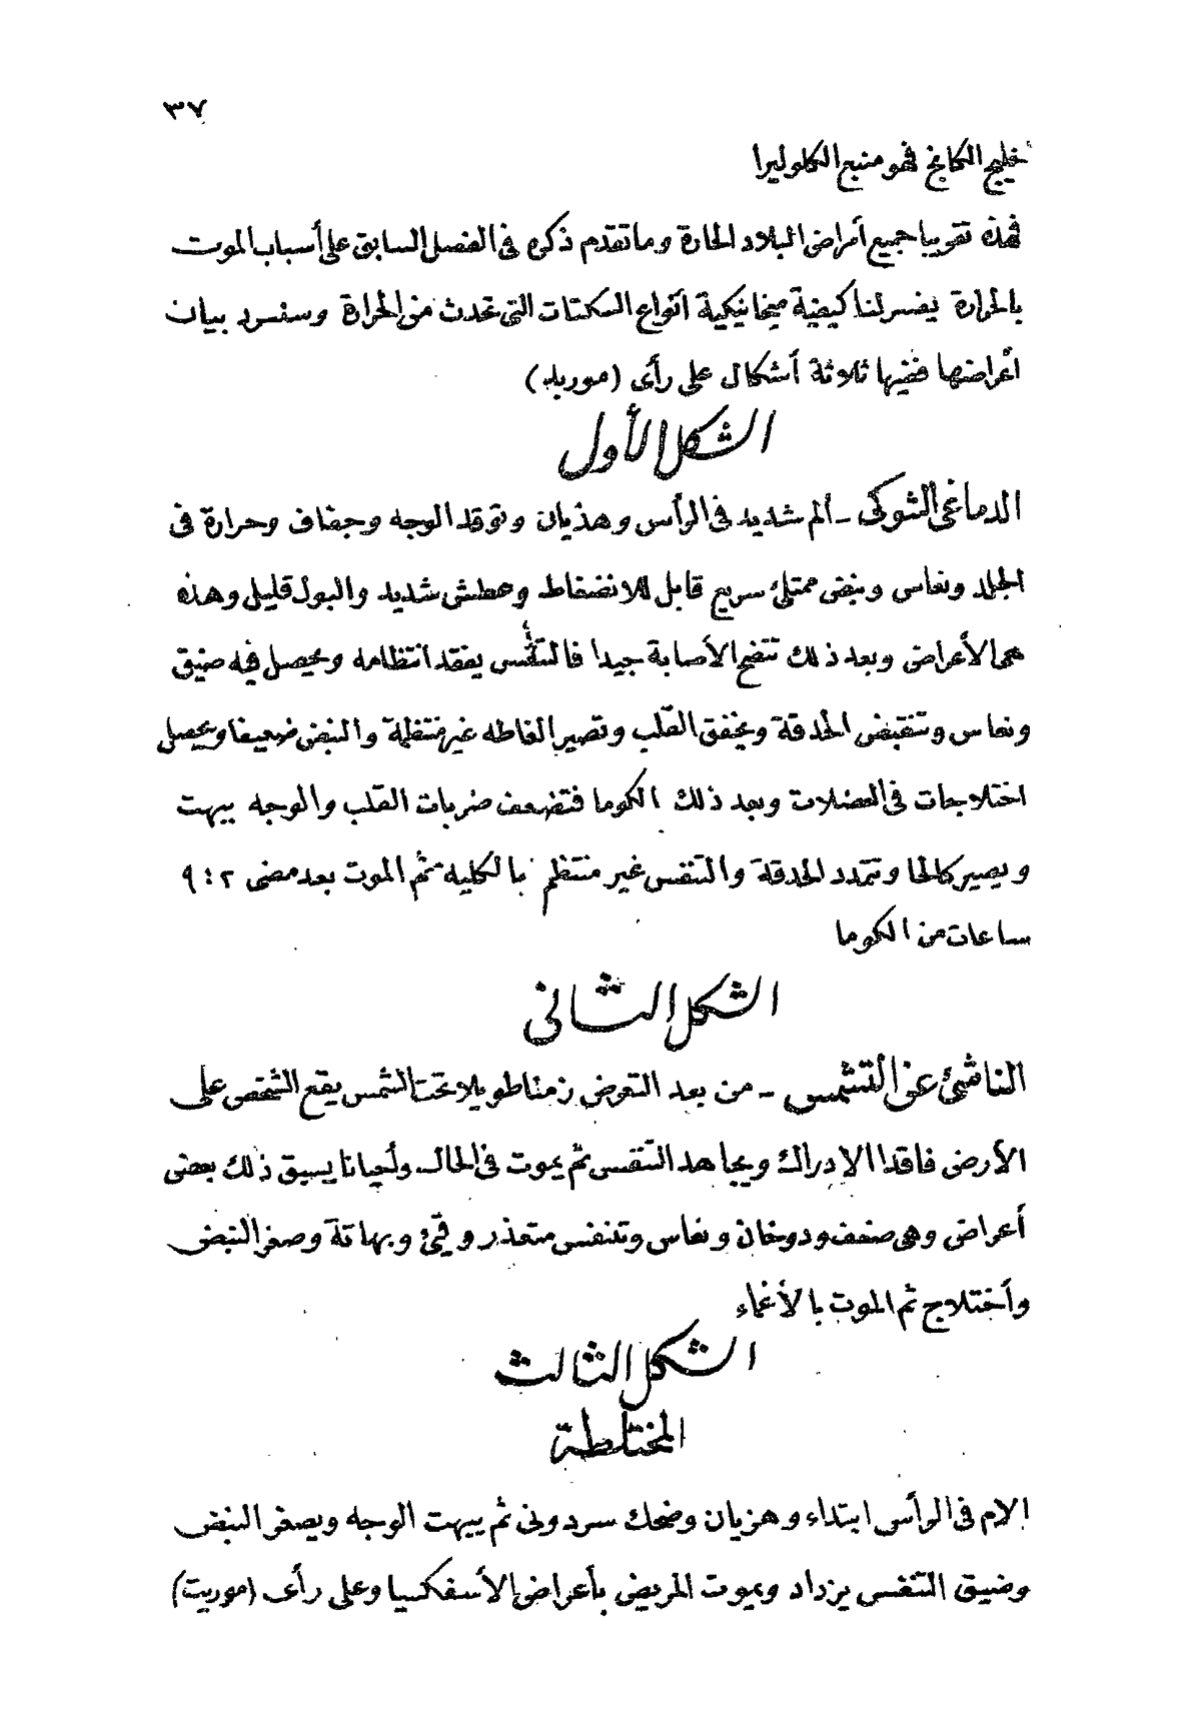 ٣٧
خليج الكانج فهو منبع الكلوليرا
فهذه تقريبا جميع أمراض البلاد الحارة وما تقدم ذكره فى الفصل السابق على أسباب الموت
بالحرارة يفسر لنا كيفية ميخانيكية أنواع السكتات التى تحدث من الحرارة وسنسرد بيان
أعراضها ففيها ثلاثة أشكال على رأى (موريه)
الشكل الأول
الدماغى الشوكى - ألم شديد فى الرأس وهذيان وتوقد الوجه وجفاف وحرارة فى
الجلد ونعاس ونبض ممتلئ سريع قابل للانضغاط وعطش شديد والبول قليل وهذه
هى الأعراض وبعد ذلك تتضح الأصابة جيدا فالتنفس يفقد انتظامه ويحصل فيه ضيق
ونعاس وتنقبض الحدقة ويخفق القلب وتصير ألفاظه غير منتظمة والنبض ضعيفا ويحصل
اختلاجات فى العضلات وبعد ذلك الكوما فتضعف ضربات القلب والوجه يبهت
ويصير كالحا وتتمدد الحدقة والتنفس غير منتظم بالكلية ثم الموت بعد مضى ٢ : ٩
ساعات من الكوما
الشكل الثانى
الناشئ عن التشمس - من بعد التعرض زمنا طويلا تحت الشمس يقع الشخص على
الأرض فاقدا الادراك ويجاهد التنفس ثم يموت فى الحال وأحيانا يسبق ذلك بعض
أعراض وهى ضعف ودوخان ونعاس وتنفس متعذر وقئ وبهاتة وصغر النبض
وأختلاج ثم الموت بالأغماء
الشكل الثالث
المختلطة
الام فى الرأس ابتداء وهزيان وضحك سردونى ثم يبهت الوجه ويصغر النبض
وضيق التنفس يزداد ويموت المريض بأعراض الأسفكسيا وعلى رأى (موريت)